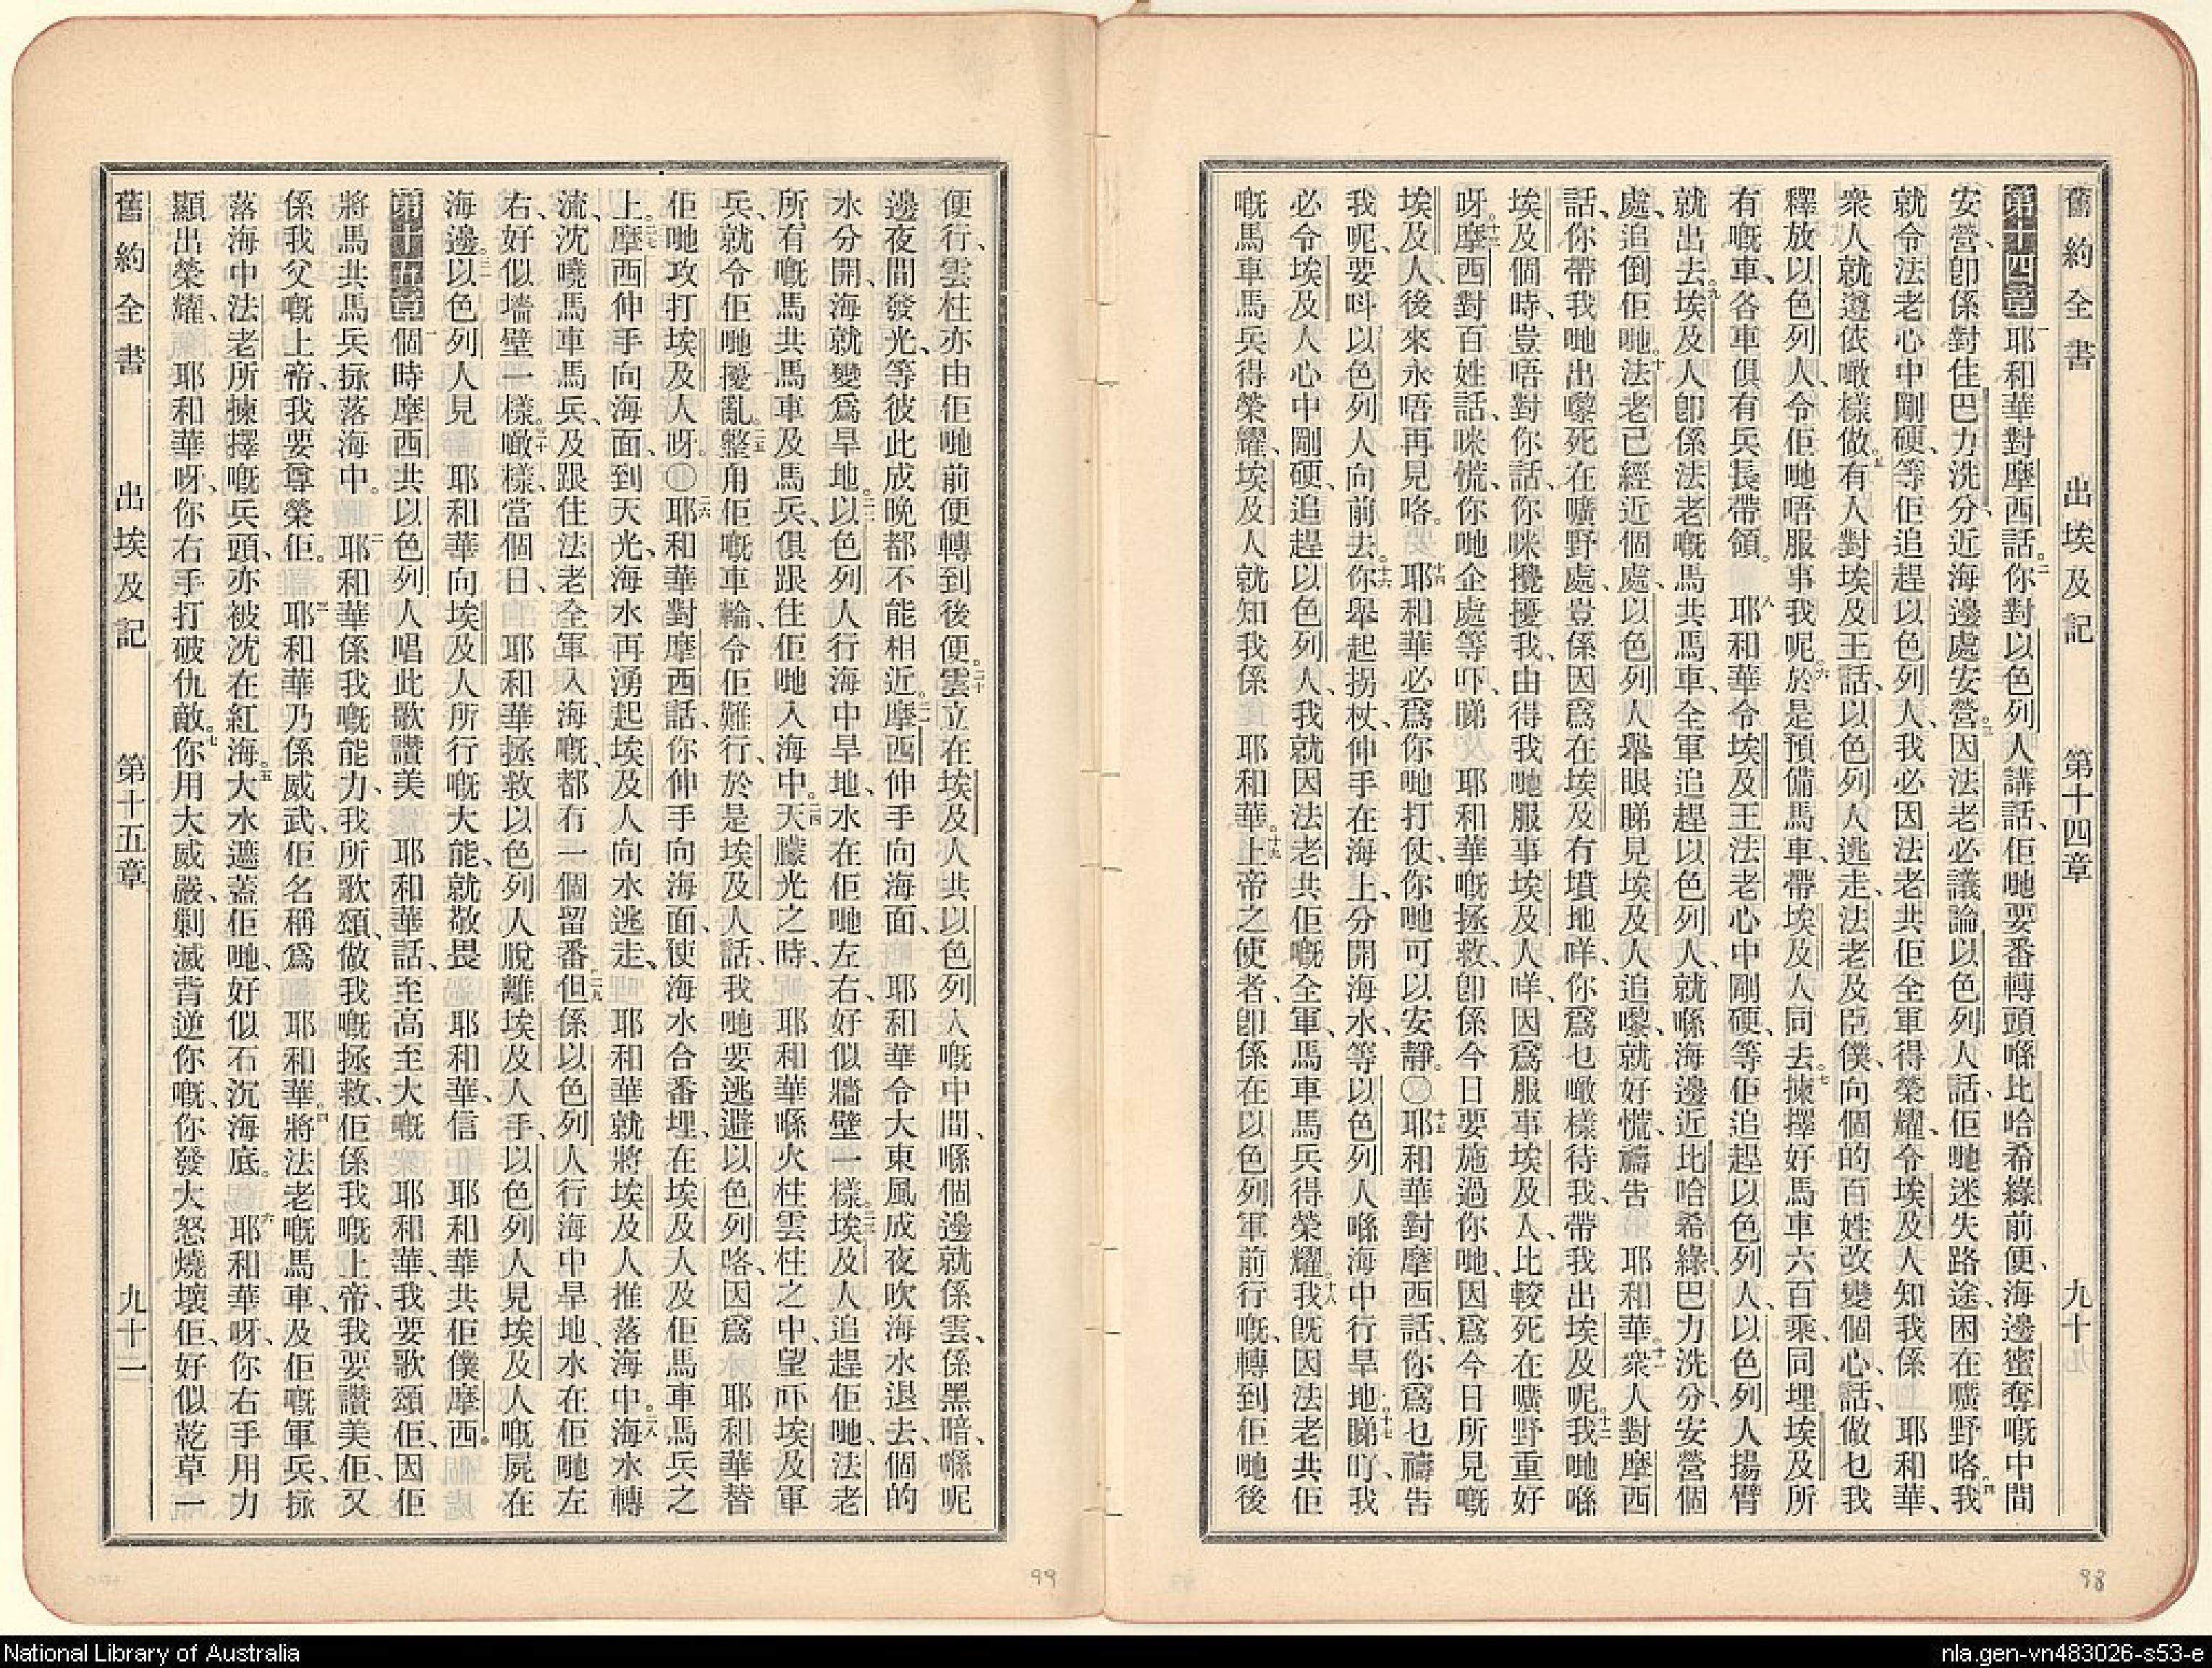 舊約全書 出埃及記 第十四章 九十
第十四章 一耶和華對摩西話。二你對以色列人講話、佢哋要番轉頭喺比哈希綠前便、海邊蜜奪嘅中間
安營、卽係對住巴力洗分、近海邊處安營。三因法老必議論以色列人話、佢哋迷失路途、困在曠野咯。四我
就令法老心中剛硬、等佢追趕以色列人、我必因法老共佢全軍得榮耀、令埃及人知我係 耶和華、
衆人就遵依噉樣做。五有人對埃及王話、以色列人逃走、法老及臣僕、向個的百姓改變個心、話、做乜我
釋放以色列人、令佢哋唔服事我呢。六於是預備馬車、帶埃及人同去。七揀擇好馬車六百乘、同埋埃及所
有嘅車、各車俱有兵長帶領。 八耶和華令埃及王法老心中剛硬、等佢追趕以色列人、以色列人揚臂
就出去。九埃及人卽係法老嘅馬共馬車、全軍追趕以色列人、就喺海邊近比哈希綠、巴力洗分、安營個
處、追倒佢哋。十法老已經近個處、以色列人舉眼睇見埃及人追嚟、就好慌、禱告 耶和華。十一衆人對摩西
話、你帶我哋出嚟死在曠野處、豈係因爲在埃及有墳地咩、你爲乜噉樣待我、帶我出埃及呢。十二我哋喺
埃及個時、豈唔對你話、你咪攪擾我、由得我哋服事埃及人咩、因爲服事埃及人、比較死在曠野重好
呀。十三摩西對百姓話、咪慌、你哋企處等吓、睇 耶和華嘅拯救、卽係今日要施過你哋、因爲今日所見嘅
埃及人、後來永唔再見咯。十四耶和華必爲你哋打仗、你哋可以安靜。〇十五耶和華對摩西話、你爲乜禱告
我呢、要呌以色列人向前去。十六你舉起拐杖、伸手在海上、分開海水、等以色列人喺海中行旱地。十七睇吖、我
必令埃及人心中剛硬、追趕以色列人、我就因法老共佢嘅全軍、馬車馬兵得榮耀。十八我旣因法老共佢
嘅馬車馬兵得榮耀、埃及人就知我係 耶和華。十九上帝之使者、卽係在以色列軍前行嘅、轉到佢哋後
98
便行、雲柱亦由佢哋前便轉到後便。二十雲立在埃及人共以色列人嘅中間、喺個邊就係雲、係黑暗、喺呢
邊夜間發光、等彼此成晚都不能相近。二一摩西伸手向海面、 耶和華令大東風成夜吹海水退去、個的
水分開、海就變爲旱地。二二以色列人行海中旱地、水在佢哋左右、好似牆壁一樣。二三埃及人追趕佢哋、法老
所有嘅馬共馬車及馬兵、俱跟住佢哋入海中。二四天朦光之時、 耶和華喺火柱雲柱之中、望吓埃及軍
兵、就令佢哋擾亂。二五整甩佢嘅車輪、令佢難行、於是埃及人話、我哋要逃避以色列咯、因爲 耶和華替
佢哋攻打埃及人呀。〇二六耶和華對摩西話、你伸手向海面、使海水合番埋、在埃及人及佢馬車馬兵之
上。二七摩西伸手向海面、到天光、海水再湧起、埃及人向水逃走、 耶和華就將埃及人推落海中。二八海水轉
流、沈曉馬車馬兵、及跟住法老全軍入海嘅、都冇一個留番。二九但係以色列人行海中旱地、水在佢哋左
右、好似墻壁一樣。三十噉樣、當個日、 耶和華拯救以色列人脫離埃及人手、以色列人見埃及人嘅屍在
海邊。三一以色列人見 耶和華向埃及人所行嘅大能、就敬畏 耶和華、信 耶和華共佢僕摩西。
第十五章 一個時摩西共以色列人唱此歌讚美 耶和華話、至高至大嘅 耶和華、我要歌頌佢、因佢
將馬共馬兵㧒落海中。 二耶和華係我嘅能力、我所歌頌、做我嘅拯救、佢係我嘅上帝、我要讚美佢、又
係我父嘅上帝、我要尊榮佢。 三耶和華乃係威武、佢名稱爲 耶和華。四將法老嘅馬車、及佢嘅軍兵、㧒
落海中、法老所揀擇嘅兵頭、亦被沈在紅海。五大水遮蓋佢哋、好似石沉海底。 六耶和華呀、你右手用力
顯出榮耀、 耶和華呀、你右手打破仇敵。七你用大威嚴、剿滅背逆你嘅、你發大怒燒壞佢、好似乾草一
舊約全書 出埃及記 第十五章 九十一
99
National Library of Australia
nla.gen-vn483026-s53-e